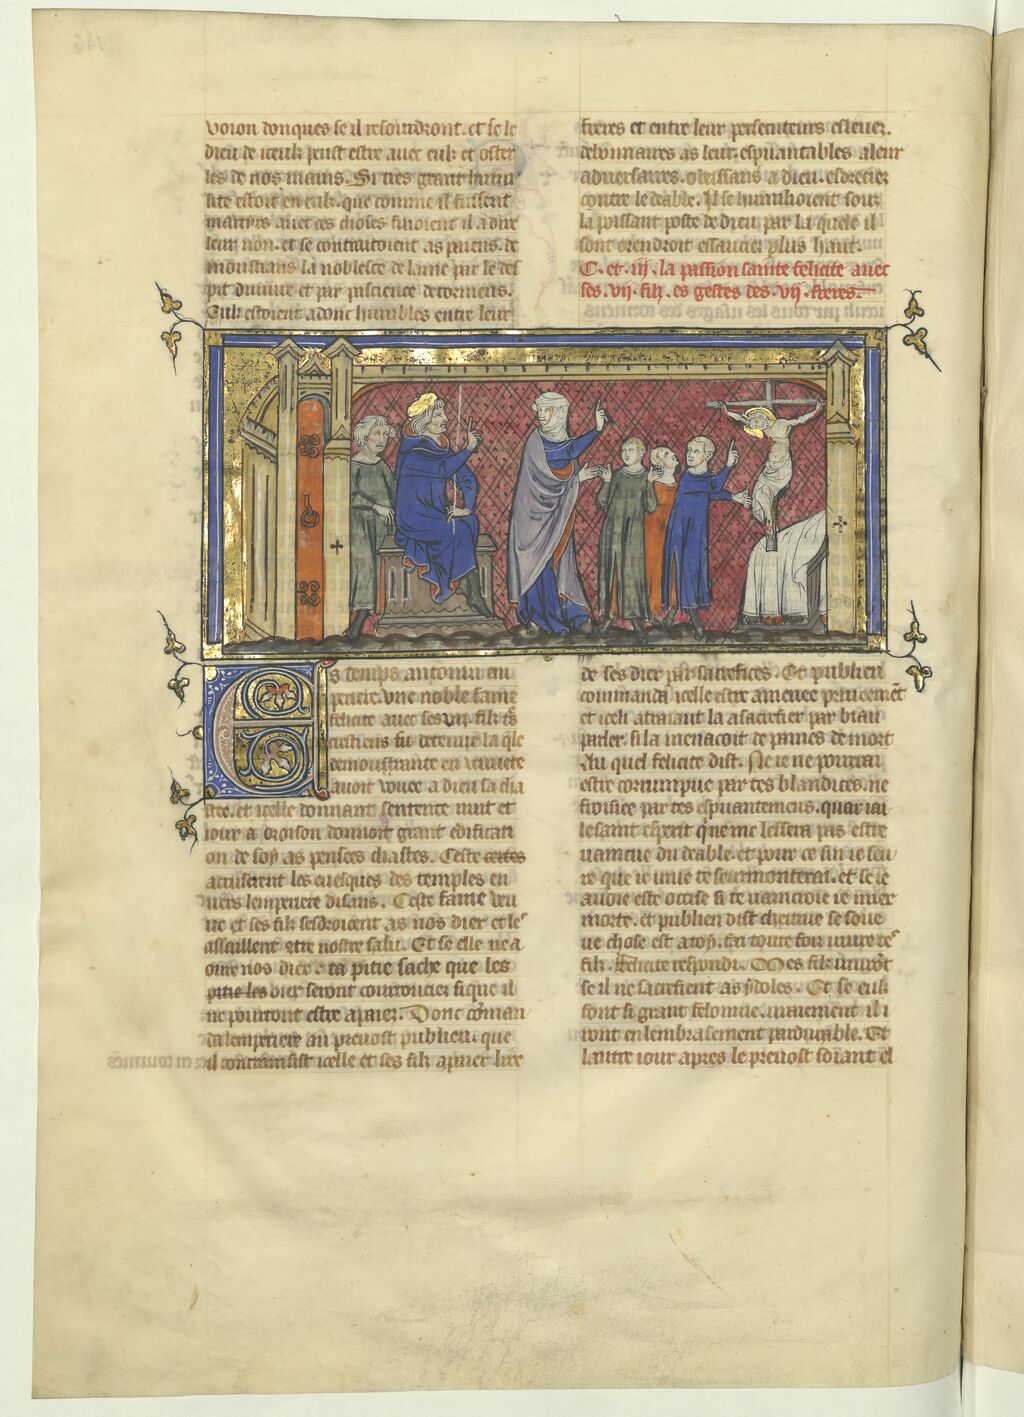 voion donques se il resourdront. et se le
dieu de iceulz peust estre avec eulz et oster
les de nos mains. Si tres grant humi
lite estoit en eulz. que comme il fussent
martyrs avec ces choses finoient il a dire
leur non. et se contraitoient as paiens. de
moustrans la noblesce de lame par le des
pit divine et par pacience de tormens.
Eulz estoient adonc humbles entre leur
freres et entre leur persecuteurs eslevez.
debonnaires as leur. espuantables a leur
adversaires. obeissans a dieu. esdreciez
contre le deable. Il se humilioient souz
la poissant poste de dieu par la quele il
sont orendroit essauciez plus haut.
C. et. iij. la passion sainte felicite avec
ses .vij. filz. es gestes des .vij. freres.
Es temps antonin em
periere. une noble fame
felicite avec ses .vij. filz tres
crestiens fu detenue la quele
demoustrante en veuvete
avoit vouee a dieu sa cha
stee. et icelle donnant sentente nuit et
iour a oroison donnoit grant edificati
on de soy as pensees chastes. Ceste certes
accuserent les evesques des temples en
vers lemperiere disans. Ceste fame veu
ve et ses filz sesdrecent as nos diex et les
assaillent contre nostre salu. Et se elle ne a
oure nos diex. ta pitie sache que les
pitie les diex seront courrouciez si que il
ne pourront estre apaiez. Donc comman
da lemperiere au prevost publien que
il contrainsist icelle et ses filz apaier lire
de ses diex par sacrefices. Et publien
commanda icelle estre amenee priveement
et iceli atraiant la a sacrefier par biau
parler. si la menacoit de paines de mort
Au quel felicite dist. Ne ie ne pourrai
estre corrumpue par tes blandices. ne
froissee par tes espuantemens. quar iai
le saint esperit qui ne me lessera pas estre
vaincue du deable. et pour ce sui ie seu
re que ie vive te seurmonterai. et se ie
avoie este occise si te vaincroie ie miex
morte. et publien dist cheitive se soue
ve chose est a toy. fai toute foiz vivre tes
filz. Felicite respondi. Mes filz vivront
se il ne sacrefient as ydoles. Et se eulz
font si grant felonnie. vraiement il i
ront en lembrasement pardurable. Et
lautre iour apres le prevost soiant el